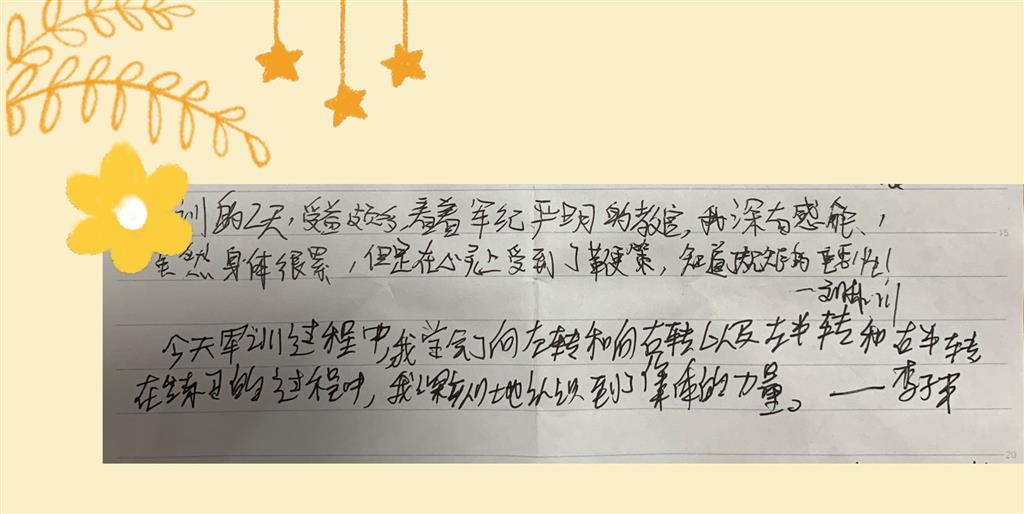 训的2天,受益颇多,看着军纪严明的教官,我深有感触、,
虽然身体很累,但是在心灵上受到了鞭策,知道规矩的重要性!
一刘林川
今天军训过程中,我学完了向左转和向右转以及左半转和右半转
在练习的过程中,我深刻地认识到了集体的力量。——李子
15
20